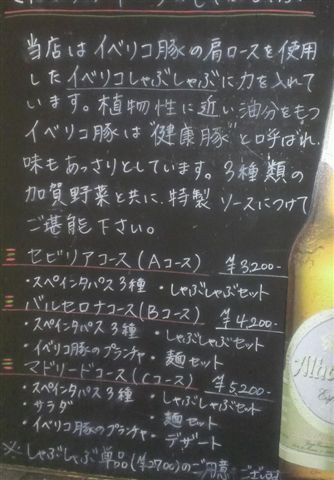 当店はイベリコ豚の肩ロースを使用
したイベリコしゃぶしゃぶに力を入れて
います。植物性に近い油分をもつ
イベリコ豚は"健康豚"と呼ばれ、
味もあっさりとしています。3種類の
加賀野菜と共に、特製ソースにつけて
ご堪能下さい。
セビリアコース(Aコース) ¥3,200-
・スペインタパス3種 ・しゃぶしゃぶセット
バルセロナコース(Bコース) ¥4,200-
・スペインタパス3種 ・しゃぶしゃぶセット
・イベリコ豚のプランチャ ・麺セット
マドリードコース(Cコース) ¥5,200-
・スペインタパス3種 ・しゃぶしゃぶセット
・サラダ ・麺セット
・イベリコ豚のプランチャ ・デザート
※しゃぶしゃぶ単品(¥2700)のご用意ございます